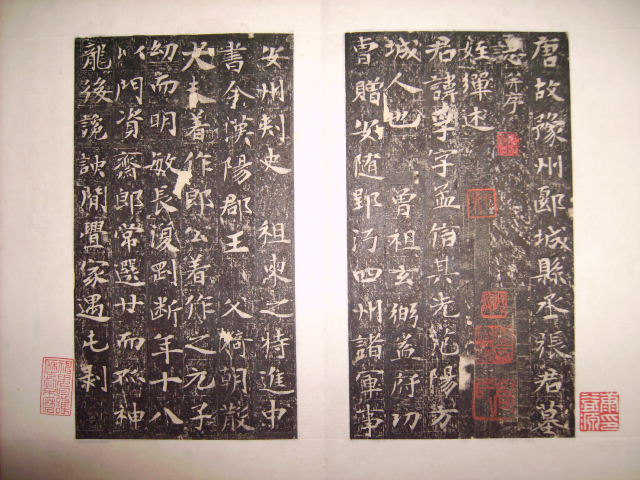 唐故豫州郾城縣丞張君墓
志并序
姪繟述
君諱孚字孟信其先范陽方
城人也 曾祖玄弼益府功
曹贈安随郢沔四州諸軍事
安州刾史 祖柬之特進中
書令漢陽郡王 父漪朝散
大夫著作郎公著作之元子
幼而明敏長復剛断年十八
以門資齊郎常選廿而孤神
龍後詭諛閒舋家遇屯剥